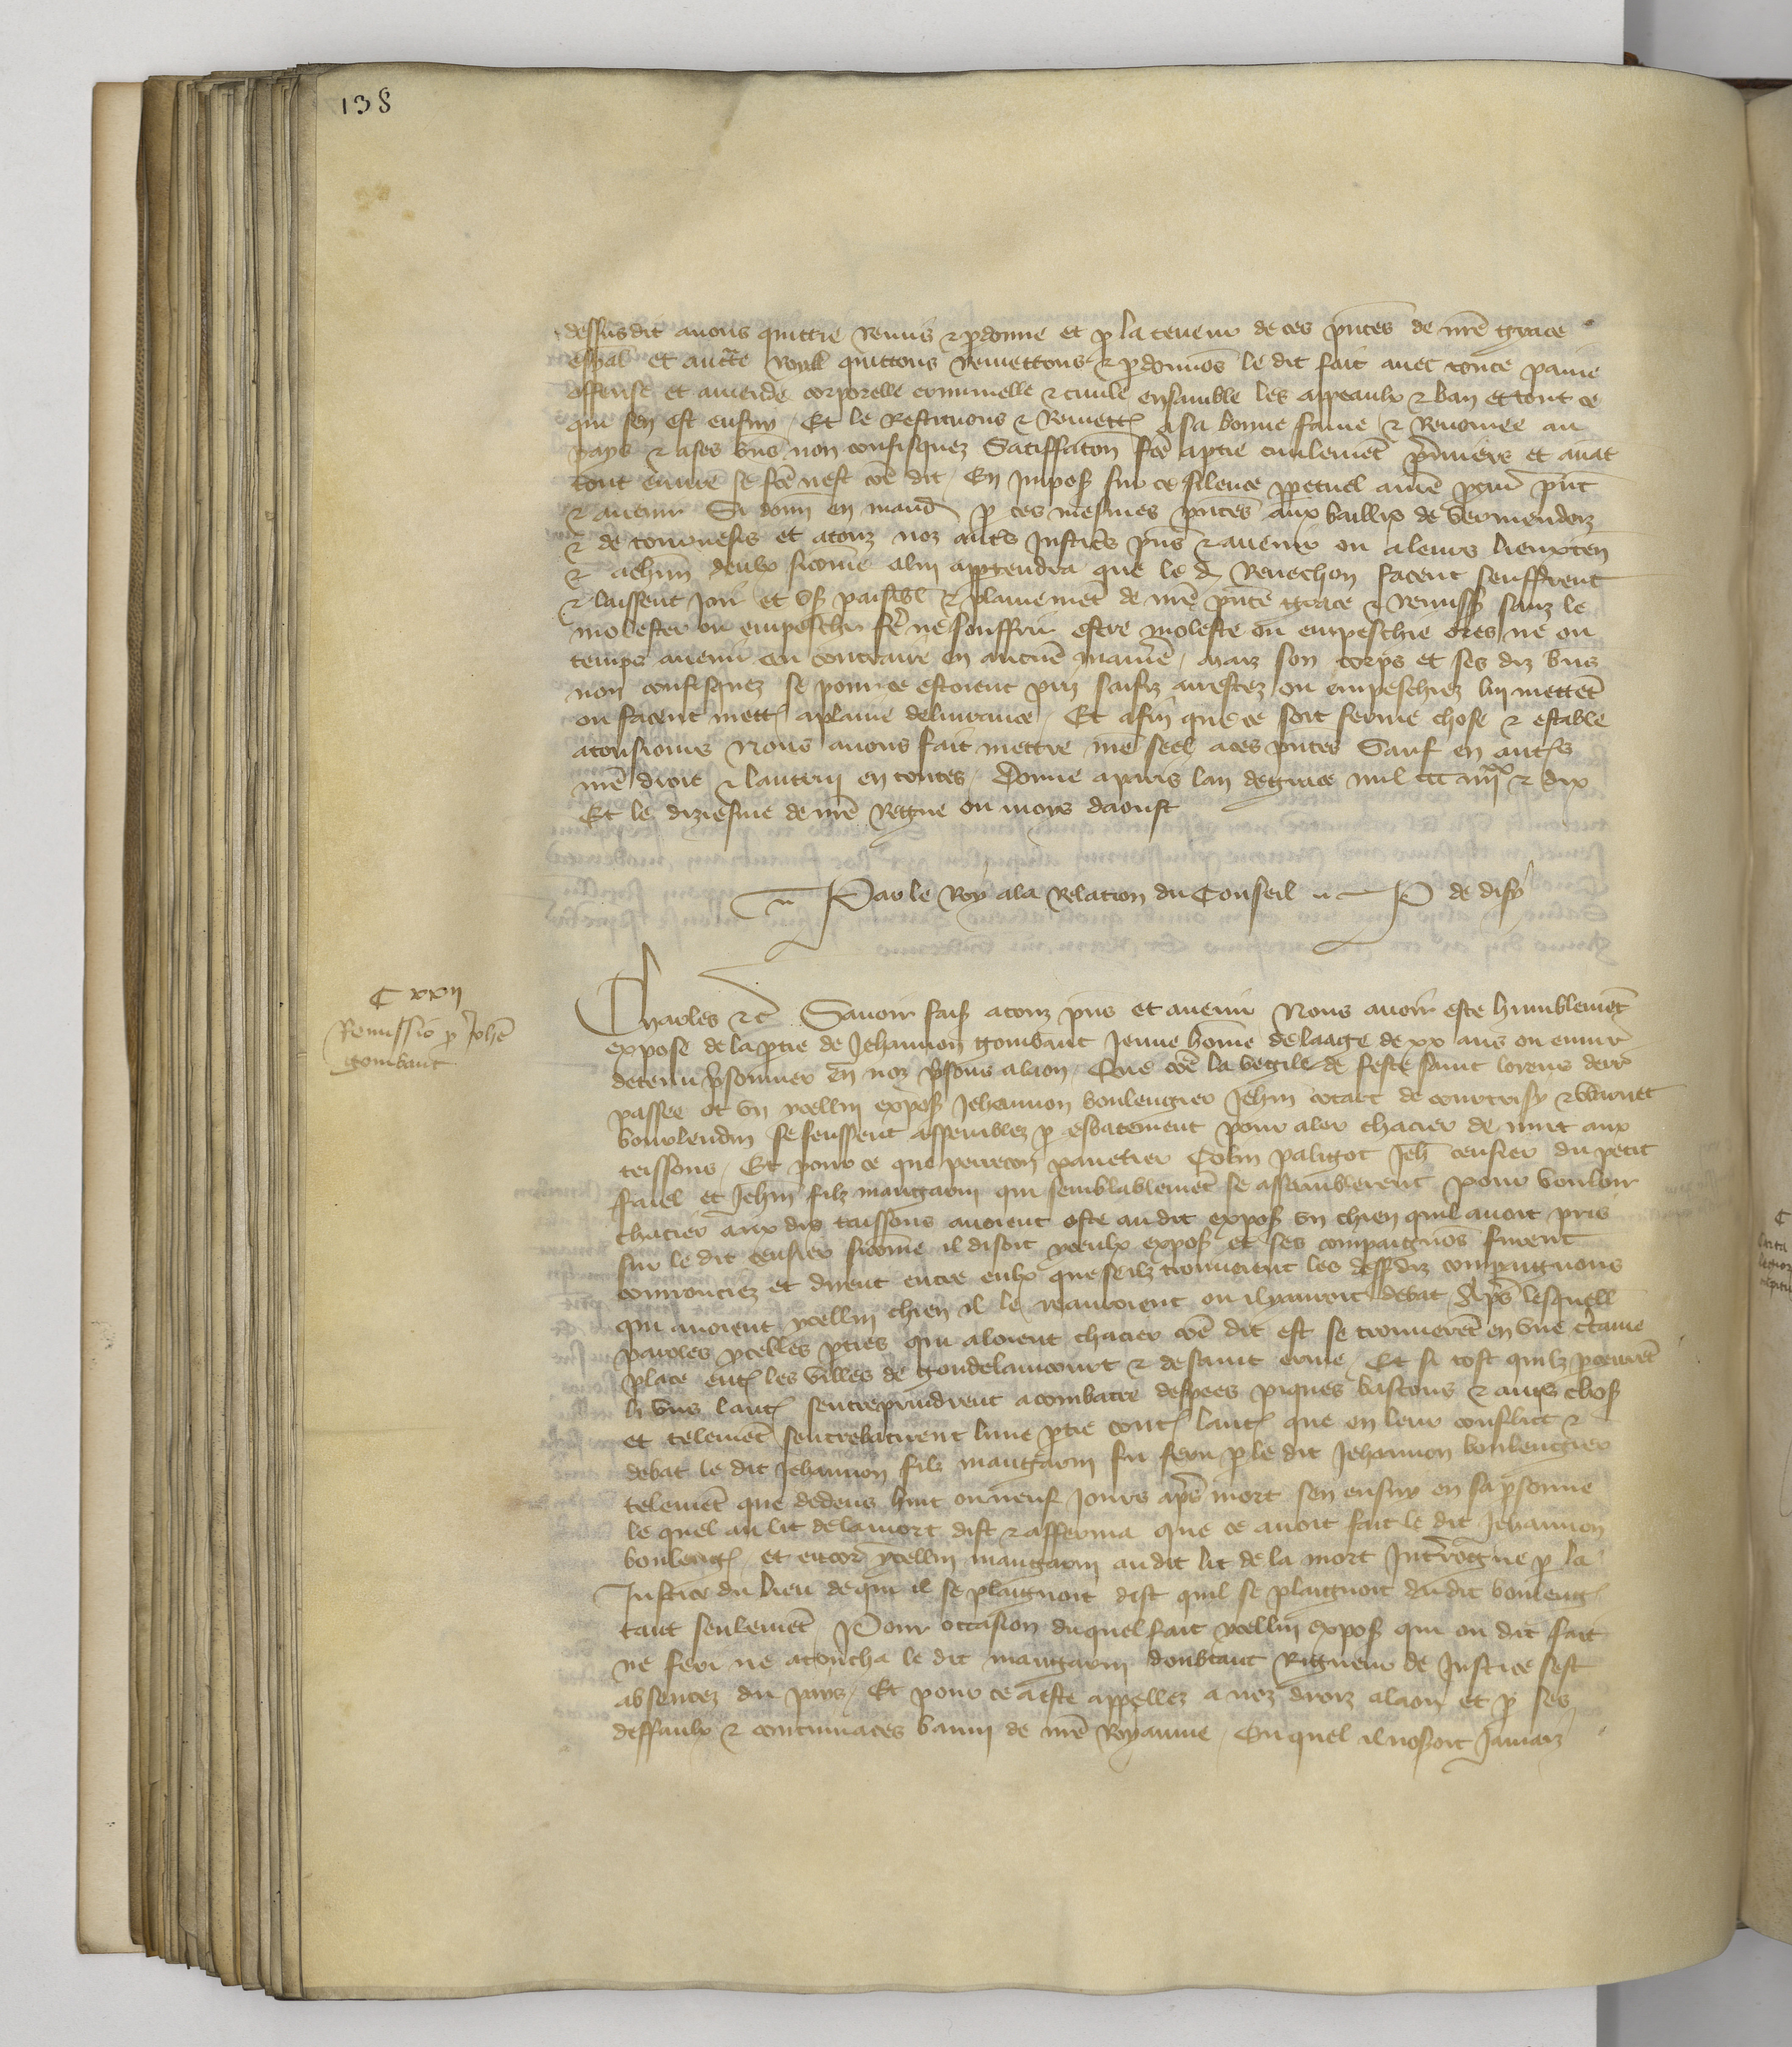 138
dessusdit auons quittie remis & pdonne et p la teneur de ces pntes de nre grace
espal et aucte royal quittons remettons & pdonnos le dit fait auec toute paine
offense et amende corporelle criminelle & ciuile ensamble les appeaulx & ban et tout ce
qui sen est ensuy Et le restituons & remett a sa bonne fame & renomee au
pays & a ses bns non confisquez Satiffaton fce a ptie ciuilemet premiers et auat
tout euure se fce nest coe dit En impos sur ce silence ppetuel a nre pcur pnt
& auenir Si donn en mand p ces mesmes pntes aux baillix de vermendoiz
& de tournesis et a touz noz autes justices pns & auenir ou a leurs lieuxten
& a chun deulx sicome a lui apptendra que le d Reuechon facent seuffrent
& laissent joir et us paisibl & plainemet de nre pnte grace & remiss sanz le
molester ou empeschier fe ne souffrir estre moleste ou empeschie ores ne ou
temps auenir au contraire en aucune maniere, maiz son corps et ses diz bns
non confisquez se pour ce estoient pris saisiz arrestez ou empeschiez lui mettet
ou facent mett a plaine deliurance Et afin que ce soit ferme chose & estable
a tousiours Nous auons fait mettre nre seel a ces pntes Sauf en autes
nre droit & lautruy en toutes Donne a paris lan de grace mil ccc iiijxx & dix
Et le diziesme de nre Regne ou moys daoust
Par le Roy a la Relation du Conseil P de disy
C xxij
Remissio p Johe
gombaut
Charles &c Sauoir fais a touz pns et auenir Nous auoir este humblemet
expose de la ptie de Jehannon gombaut jeune home de laage de xx ans ou enuir
detenu prisonnier en noz prisons a laon Que coe la vegile de feste saint lorens derr
passee ot un ycellui expos Jehannon boulengier Jehin cotart de courtrisy &
boulendin se feussent assemblez p esbatement pour aler chacier de nuit aux
teissons Et pour ce que perrecon panetier Colin paligot Jeh censier du petit
failel et Jehin filz maugarni qui semblablemet se assamblerent pour vouloir
chacier aux dis taissons auoient oste au dit expos un chien quil auoit pris
sur le dit censier sicome il disoit yceulx expos et ses compaignos furent
courrouciez et dirent entre eulx que se ilz trouuoient les dessdiz compaignons
qui auoient ycellui chien il le reauroient ou il y auroit debat Apres lesquell
paroles ycelles pties qui aloient chacier coe dit est se trouueret en une ctaine
place ent les villes de goudelaincourt & de saint erme Et si tost quilz pceuret
li uns laut sentreprindrent a combatre despees piques bastons & autes chos
et telemet sentrebatirent lune ptie cont laut que en leur conflict &
debat le dit Jehannon filz maugarni fu feru p le dit Jehannon boulengier
telemet que dedens huit ou neuf jours apres mort sen ensuy en sa psonne
le quel au lit de la mort dist & afferma que ce auoit fait le dit Jehannon
bouleng et encor ycellui maugarni au dit lit de la mort Interrogue p la
Justice du lieu de qui il se plaignoit dist quil se plaignoit dudit bouleng
tant seulemet Pour occasion duquel fait ycellui expos qui ou dit fait
ne feri ne atoucha le dit maugarni doubtant rigueur de justice sest
absentez du pays Et pour ce a este appellez a noz droiz a laon et p ses
deffaulx & contumaces banni de nre Royaume Ou quel il nosoit jamaiz